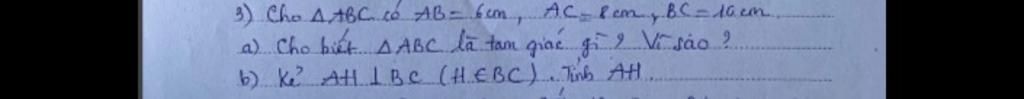 3) Cho Δ ABC có AB = 6cm, AC = 8cm, BC = 10cm
a) Cho biết Δ ABC là tam giác gì? Vì sao?
b) Kẻ AH ⊥ BC (H ∈ BC). Tính AH.